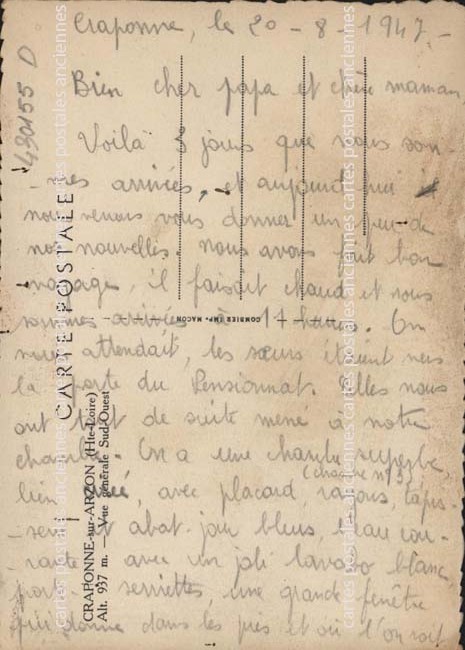 Craponne, le 20 - 8 - 1947 -
Bien cher papa et chère maman
Voilà 3 jours que nous som-
-mes arrivées, et aujourd'hui
nous venons vous donner un peu de
nos nouvelles. nous avons fait bon
voyage, il faisait chaud et nous
sommes arrivées à 14 heures. On
nous attendait, les sœurs étaient vers
la porte du Pensionnat. Elles nous
ont tout de suite mené à notre
chambre. On a une chambre superbe
(chambre n° 3)
bien, avec placard rayons, tapis-
-serie et abat-jour bleus, eau cou-
-rante avec un joli lavabo blanc,
porte serviettes, une grande fenêtre
qui donne dans les prés et où l'on voit
CARTE POSTALE
CRAPONNE-sur-ARZON (Hte-Loire)
Alt. 937 m. — Vue générale Sud-Ouest
COMBIER IMP. MACON
430155 D
cartes postales anciennes